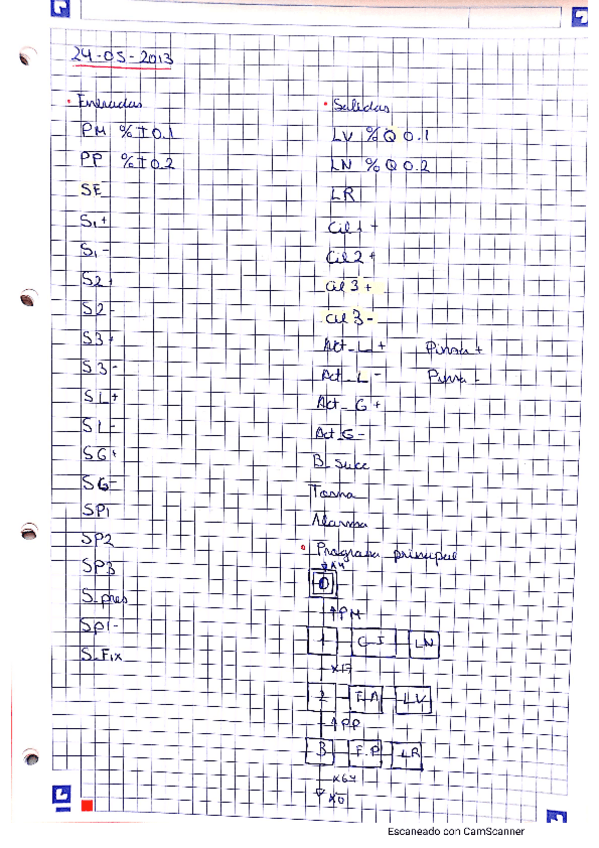 24-05-2013
• Entradas
PM %I0.1
PP %I0.2
SE
S1+
S1-
S2+
S2-
S3+
S3-
SL+
SL-
SG+
SG-
SP1
SP2
SP3
S_pres
Sp1-
S_Fix
• Salidas
LV %Q0.1
LN %Q0.2
LR
Cil 1 +
Cil 2 +
Cil 3 +
Cil 3 -
Act_L + Pinza +
Act_L - Pinza -
Act_G +
Act_G -
B_Succ
Toma
Alarma
• Programa principal
0
↑PM
1 C-I LN
X17
2 F.A LV
↑PP
3 F.P LR
X64
X0
Escaneado con CamScanner